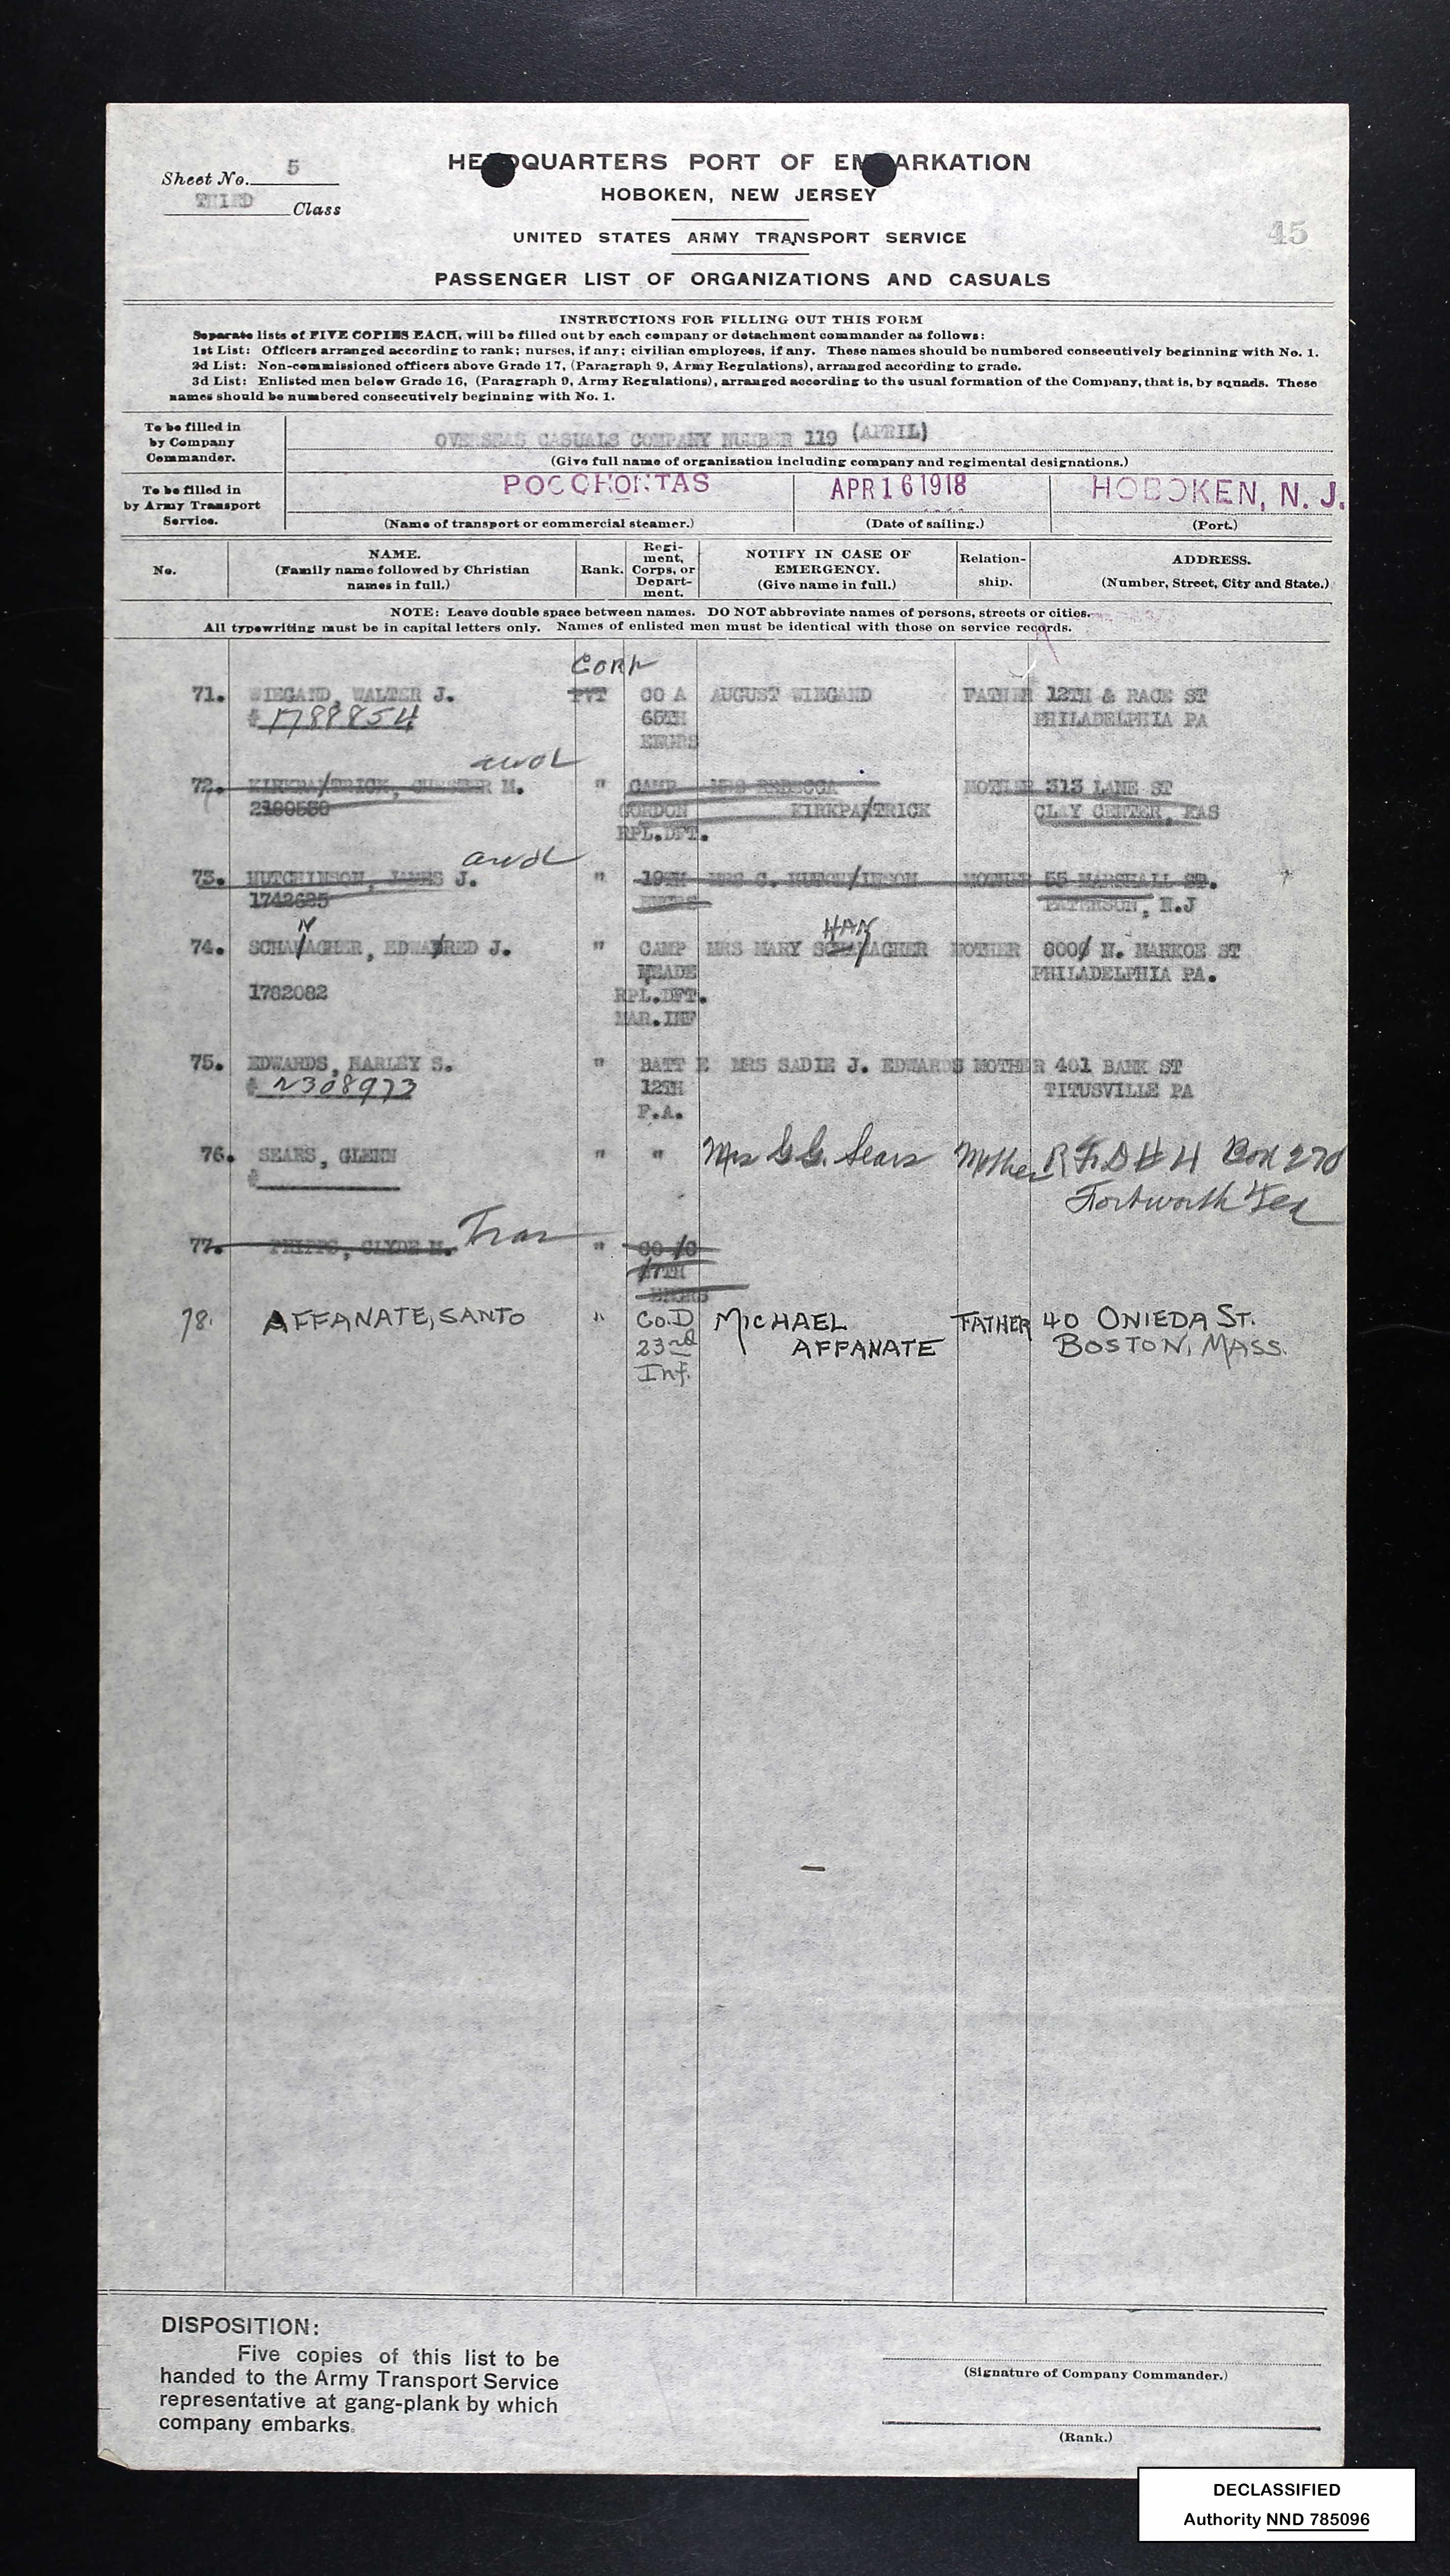 Sheet No. 5
THIRD Class
HEADQUARTERS PORT OF EMBARKATION
HOBOKEN, NEW JERSEY
UNITED STATES ARMY TRANSPORT SERVICE
45
PASSENGER LIST OF ORGANIZATIONS AND CASUALS
INSTRUCTIONS FOR FILLING OUT THIS FORM
Separate lists of FIVE COPIES EACH, will be filled out by each company or detachment commander as follows:
1st List: Officers arranged according to rank; nurses, if any; civilian employees, if any. These names should be numbered consecutively beginning with No. 1.
2d List: Non-commissioned officers above Grade 17, (Paragraph 9, Army Regulations), arranged according to grade.
3d List: Enlisted men below Grade 16, (Paragraph 9, Army Regulations), arranged according to the usual formation of the Company, that is, by squads. These
names should be numbered consecutively beginning with No. 1.
To be filled in by Company Commander.
OVERSEAS CASUALS COMPANY NUMBER 119 (APRIL)
(Give full name of organization including company and regimental designations.)
To be filled in by Army Transport Service.
POCOHONTAS APR 16 1918 HOBOKEN, N. J.
(Name of transport or commercial steamer.) (Date of sailing.) (Port.)
No. NAME. (Family name followed by Christian names in full.) Rank. Regiment, Corps, or Department. NOTIFY IN CASE OF EMERGENCY. (Give name in full.) Relationship. ADDRESS. (Number, Street, City and State.)
NOTE: Leave double space between names. DO NOT abbreviate names of persons, streets or cities.
All typewriting must be in capital letters only. Names of enlisted men must be identical with those on service records.
CORP
71. WIEGAND, WALTER J. PVT CO A AUGUST WIEGAND FATHER 12TH & RACE ST
# 1788854 65TH PHILADELPHIA PA
ENGRS
awol
72. KIRKPA/TRICK, CHESTER M. " CAMP MRS REBECCA MOTHER 313 LANE ST
2190580 GORDON KIRKPA/TRICK CLAY CENTER, KAS
RPL.DFT.
awol
73. HUTCHINSON, JAMES J. " 19TH MRS C. HUTCHINSON MOTHER 55 MARSHALL ST.
1742625 ENGRS PETERSON, N.J
N HAN
74. SCHANAGHER, EDWARED J. " CAMP MRS MARY SCHANAGHER MOTHER 8000 N. MARKOE ST
MEADE PHILADELPHIA PA.
1782082 RPL.DFT.
MAR.INF
75. EDWARDS, HARLEY S. " BATT E MRS SADIE J. EDWARDS MOTHER 401 BANK ST
# 2308973 12TH TITUSVILLE PA
F.A.
76. SEARS, GLENN " " Mrs G G. Sears Mother R F D # 4 Box 270
# Fortworth Tex
77. PHIPPS, CLYDE M. Tran " CO C
17TH
ENGRS
78. AFFANATE, SANTO " Co. D MICHAEL FATHER 40 ONIEDA ST.
23rd AFFANATE BOSTON, MASS.
Inf.
DISPOSITION:
Five copies of this list to be
handed to the Army Transport Service
representative at gang-plank by which
company embarks.
(Signature of Company Commander.)
(Rank.)
DECLASSIFIED
Authority NND 785096